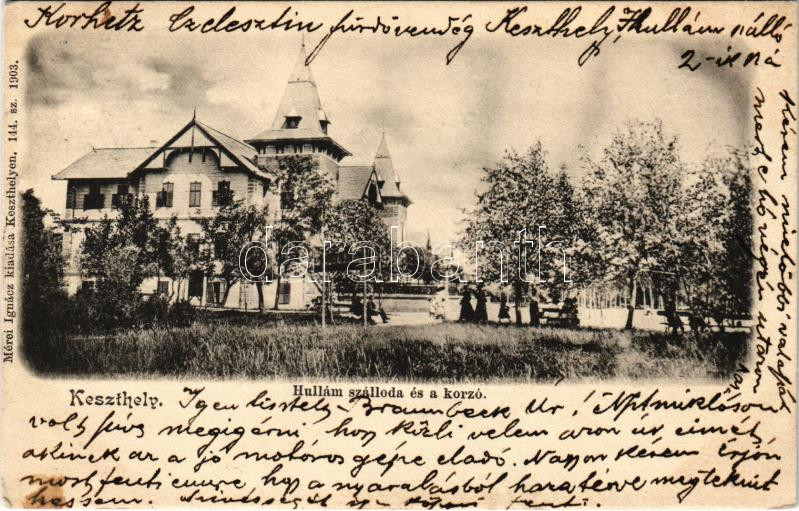 Korhetz Czelesztin fürdővendég Keszthely, Hullám szálló
2-ik
Mérei Ignácz kiadása Keszthelyen. 144. sz. 1903.
Kérem mielőbbi
mert e hó végén utazom
darabanth
Hullám szálloda és a korzó.
Keszthely. Igen tisztelt Braumbeck Ur!
volt megigérni hogy közli velem azon úr címét
akinek az a jó motoros gépe eladó. Nagyon kérem írjon
most fenti címre hogy a nyaralásból hazatérve megtekint
hessem.